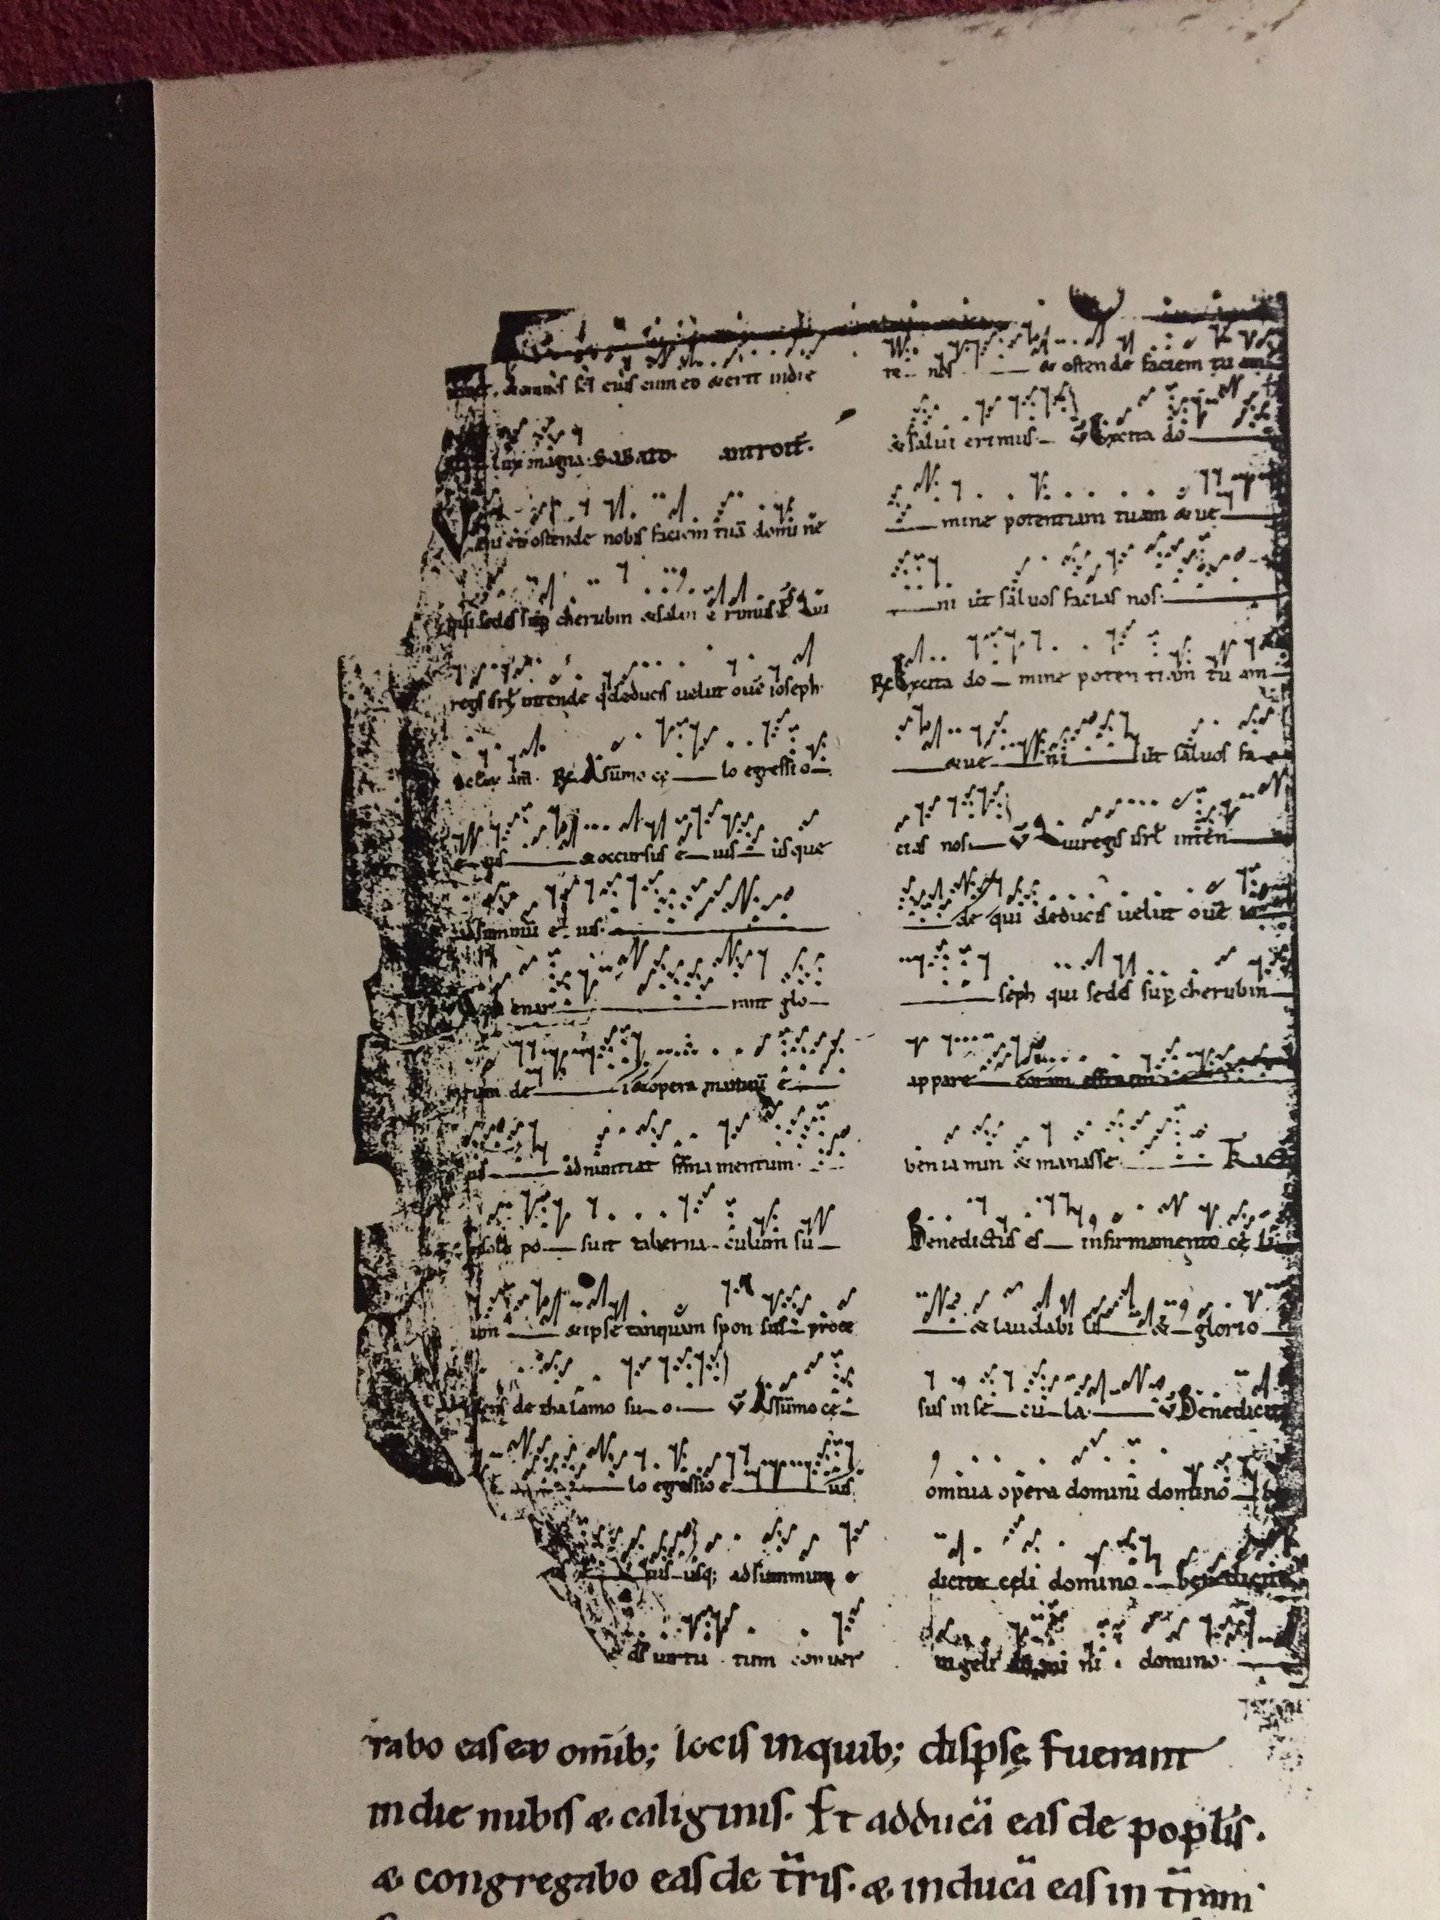 & omnes sc̄i eius cum eo & erit in die
lux magna. SABATO ANTROIT̄.
Veni & ostende nobis faciem tuā domi nē
qui sedes sup̄ cherubin & salui e rimus. P̄S. Qui
regis isrl̄ intende q̄ deducis uelut ouē ioseph.
R̄E A sūmo cę lo egressi o
e ius & occursus e ius us que
ad summū e ius.
enar rant glo
riam de i & opera manuū e
ius adnuntiat firmamentum.
sole po suit taberna culum su
um & ipse tanquam spon sus proce
dens de thalamo su o. V̄ A sūmo cę
lo egressio e ius
ius usq; ad summum e
ds uirtu tum conuer
re nos & ostende faciem tu am
& salui erimus. V̄ Excita do
mine potentiam tuam & ue
ni ut saluos facias nos.
R̄E Excita do mine poten tiam tu am
& ue ni ut saluos fa
cias nos. V̄ Qui regis isrl̄ inten
de qui deducis uelut ouē io
seph qui sedes sup̄ cherubin
appare coram effraim
beniamin & manasse.
Benedictus es in firmamento cę li
& laudabi lis & glorio
sus in se cu la. V̄ Benedicite
omnia opera domini domino be
dicite cęli domino benedicite
angeli domi ni domino
rabo eas ex om̄ib; locis in quib; dispsę fuerant
in die nubis & caliginis. Et adducā eas de poplis.
& congregabo eas de t̄ris. & inducā eas in t̄ram